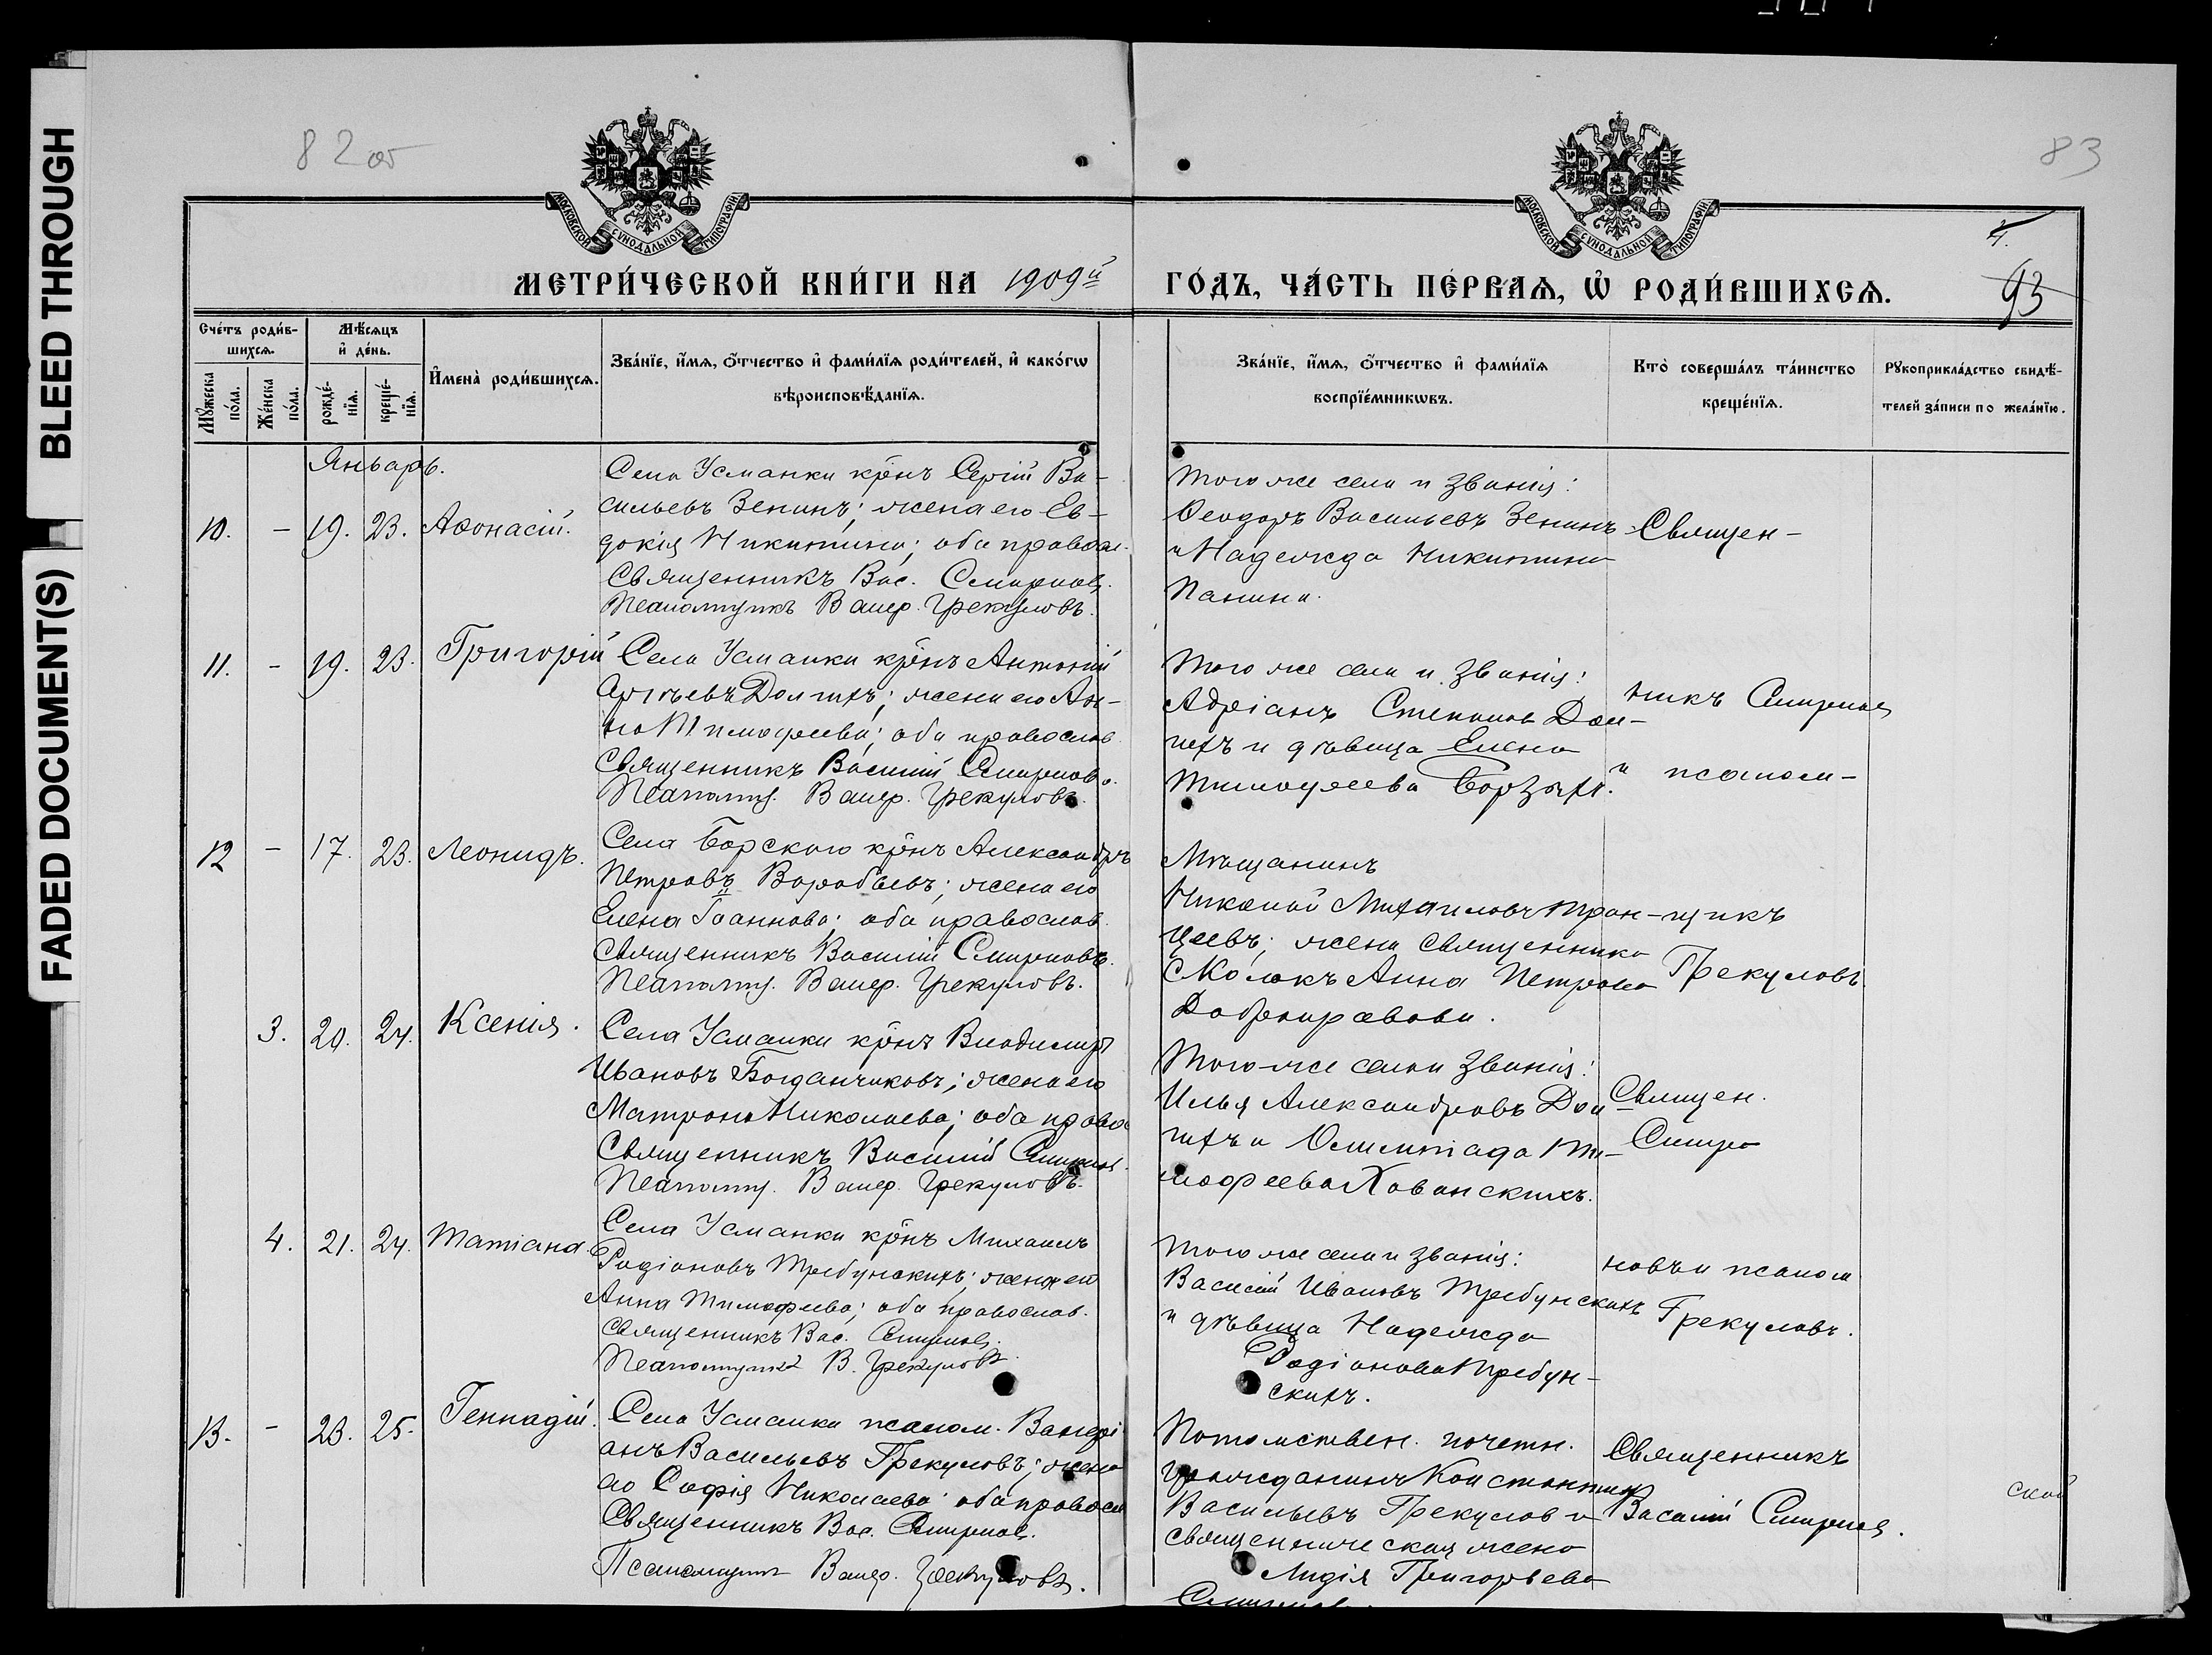 BLEED THROUGH
FADED DOCUMENT(S)
82 об
83
МОСКОВСКОЙ СѴНОДАЛЬНОЙ ТИПОГРАФІИ
МОСКОВСКОЙ СѴНОДАЛЬНОЙ ТИПОГРАФІИ
4.
93
МЕТРИ́ЧЕСКОЙ КНИ́ГИ НА 1909й ГО́ДЪ, ЧА́СТЬ ПЕ́РВАѦ, Ѡ҆ РОДИ́ВШИХСѦ.
Сче́тъ роди́в-
шихсѧ.
Мѣ́сѧцъ
и҆ де́нь.
Мꙋ́жеска
по́ла.
Же́нска
по́ла.
рожде́-
нїѧ.
креще́-
нїѧ.
И҆мена̀ роди́вшихсѧ.
Зва́нїе, и҆́мѧ, ѻ҆́тчество и҆ фами́лїѧ роди́телей, и҆ како́гѡ
вѣроисповѣ́данїѧ.
Зва́нїе, и҆́мѧ, ѻ҆́тчество и҆ фами́лїѧ
воспрїе́мникѡвъ.
Кто̀ соверша́лъ та́инство
креще́нїѧ.
Рꙋкоприкла́дство свидѣ́-
телей за́писи по жела́нїю.
Январь.
10. - 19. 23. Аѳонасій.
Села Усманки крнъ Сергій Ва-
сильевъ Зенинъ; жена его Ев-
докія Никитина; оба правосл.
Священникъ Вас. Смирновъ.
Псаломщикъ Валер. Грекуловъ.
Того же села и званія:
Ѳеодоръ Васильевъ Зенинъ
и Надежда Никитина
Панина.
Священ-
11. - 19. 23. Григорій
Села Усманки крнъ Антоній
Сергѣевъ Долгихъ; жена его Ан-
на Тимофеева; оба православ.
Священникъ Василій Смирновъ.
Псаломщ. Валер. Грекуловъ.
Того же села и званія:
Адріанъ Степановъ Дол-
гихъ и дѣвица Елена
Тимофеева Борзыхъ.
никъ Смирновъ
и псалом-
12 - 17. 23. Леонидъ.
Села Борского крнъ Александръ
Петровъ Воробьевъ; жена его
Елена Іоаннова; оба православ.
Священникъ Василій Смирновъ.
Псаломщ. Валер. Грекуловъ.
Мѣщанинъ
Николай Михаиловъ Тран-
цеевъ; жена священника
с. Колокъ Анна Петрова
Добронравова.
щикъ
Грекуловъ
3. 20. 24. Ксенія.
Села Усманки крнъ Владимиръ
Ивановъ Богданчиковъ; жена его
Матрона Николаева; оба право
Священникъ Василій Смирнов.
Псаломщ. Валер. Грекуловъ.
Того-же села и званія:
Илья Александровъ Дол
гихъ и Олимпіада Ти-
мофеева Хованскихъ.
Священ.
Смир-
4. 21. 24. Татіана.
Села Усманки крнъ Михаилъ
Родіоновъ Требунскихъ; жена его
Анна Тимофеева; оба православ.
Священникъ Вас. Смирновъ.
Псаломщикъ В. Грекуловъ.
Того же села и званія:
Василій Ивановъ Требунскихъ
и дѣвица Надежда
Родіонова Требун-
скихъ.
новъ и псалом
Грекуловъ.
13. - 23. 25. Геннадій.
Села Усманки псалом. Валері
анъ Васильевъ Грекуловъ; жена
его Софія Николаева; оба правосл
Священникъ Вас. Смирнов.
Псаломщик Валер. Грекуловъ.
Потомствен. почетн.
гражданинъ Константинъ
Васильевъ Грекулов и
священническая жена
Лидія Григорьева
Смирнова.
Священникъ
Василій Смирнов.
ской